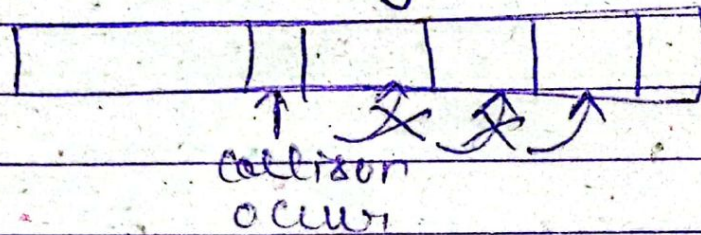 collison
occur